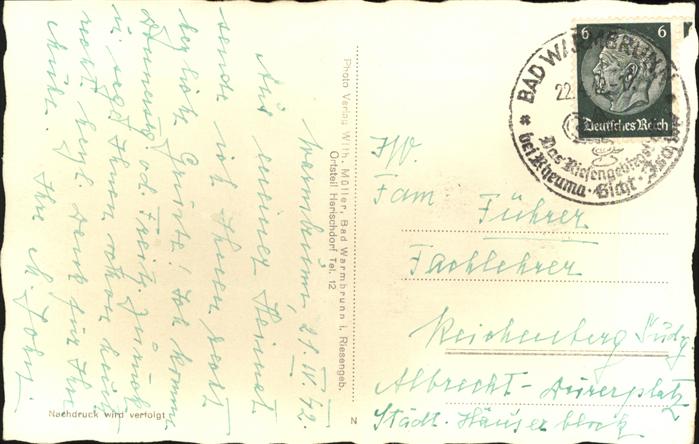 Warmbrunn 21. IV. 42.
Aus meiner Heimat
sende ich Ihnen recht
herzliche Grüsse! Ich komme
Donnerstag od. Freitg. zurück
u. sage Ihnen schon heut
recht herzl. Dank für Ihre
Mühe. Ihr
Photo Verlag Wilh. Müller, Bad Warmbrunn i. Riesengeb.
Ortsteil Herischdorf Tel. 12
Nachdruck wird verfolgt
N
BAD WARMBRUNN
22.
Das Riesengebirgs
bei Rheuma · Gicht ·
6 6
Deutsches Reich
Fam. Führer
Fachlehrer
Reichenberg Sudg.
Albrecht-Dürerplatz
Städt. Häuserblock